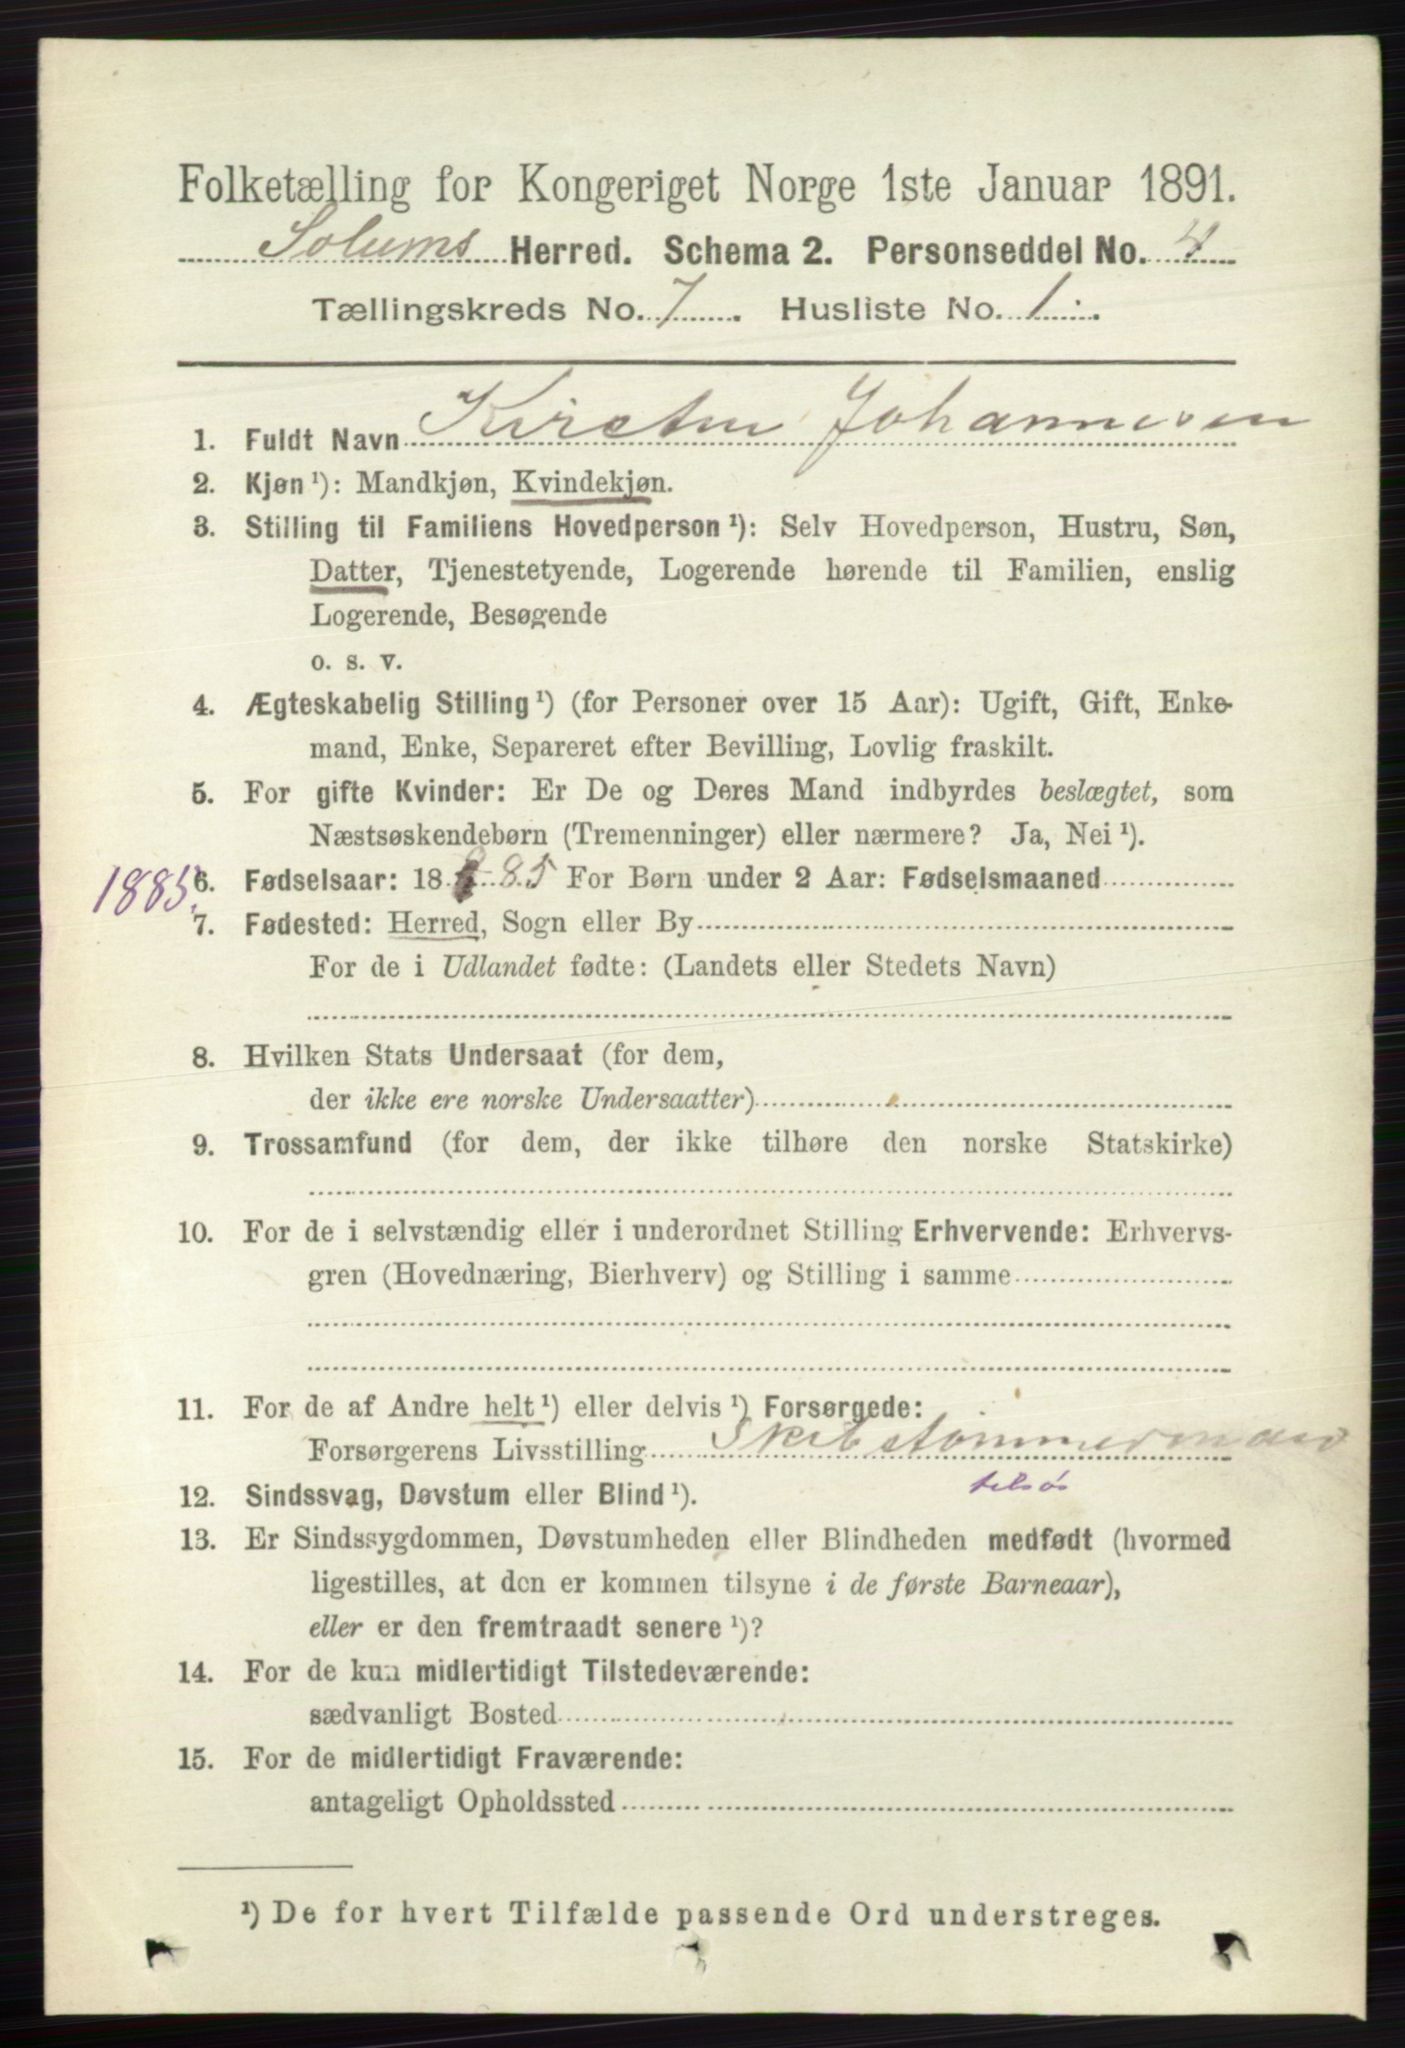 Folketælling for Kongeriget Norge 1ste Januar 1891.
Solums Herred. Schema 2. Personseddel No. 4
Tællingskreds No. 7. Husliste No. 1.
1. Fuldt Navn Kirsten Johannesen
2. Kjøn ¹): Mandkjøn, Kvindekjøn.
3. Stilling til Familiens Hovedperson ¹): Selv Hovedperson, Hustru, Søn,
Datter, Tjenestetyende, Logerende hørende til Familien, enslig
Logerende, Besøgende
o. s. v.
4. Ægteskabelig Stilling ¹) (for Personer over 15 Aar): Ugift, Gift, Enke-
mand, Enke, Separeret efter Bevilling, Lovlig fraskilt.
5. For gifte Kvinder: Er De og Deres Mand indbyrdes beslægtet, som
Næstsøskendebørn (Tremenninger) eller nærmere? Ja, Nei ¹).
1885. 6. Fødselsaar: 18 85 For Børn under 2 Aar: Fødselsmaaned
7. Fødested: Herred, Sogn eller By
For de i Udlandet fødte: (Landets eller Stedets Navn)
8. Hvilken Stats Undersaat (for dem,
der ikke ere norske Undersaatter)
9. Trossamfund (for dem, der ikke tilhøre den norske Statskirke)
10. For de i selvstændig eller i underordnet Stilling Erhvervende: Erhvervs-
gren (Hovednæring, Bierhverv) og Stilling i samme
11. For de af Andre helt ¹) eller delvis ¹) Forsørgede:
Forsørgerens Livsstilling Skibstømmermand
tilsøs
12. Sindssvag, Døvstum eller Blind ¹).
13. Er Sindssygdommen, Døvstumheden eller Blindheden medfødt (hvormed
ligestilles, at den er kommen tilsyne i de første Barneaar),
eller er den fremtraadt senere ¹)?
14. For de kun midlertidigt Tilstedeværende:
sædvanligt Bosted
15. For de midlertidigt Fraværende:
antageligt Opholdssted
¹) De for hvert Tilfælde passende Ord understreges.